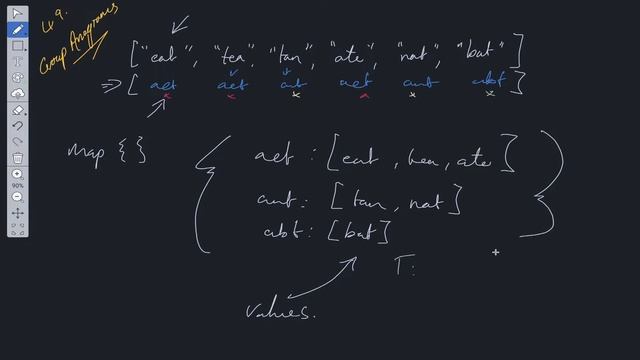 49.
Group Anagrams
["eat", "tea, "tan", "ate", "nat", "bat"]
=> [ aet aet ant aet ant abt ]
map { }
{ aet : [eat, tea, ate]
ant : [tan, nat]
abt : [bat] }
T:
values.
90%